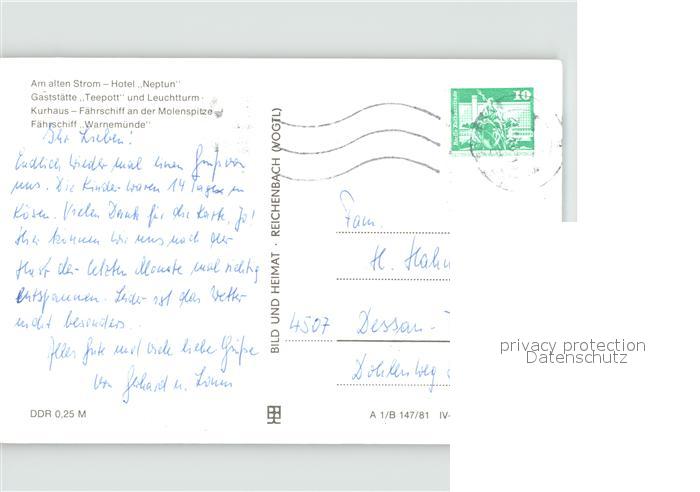 Am alten Strom – Hotel „Neptun"
Gaststätte „Teepott" und Leuchtturm
Kurhaus – Fährschiff an der Molenspitze
Fährschiff „Warnemünde"
Ihr Lieben!
Endlich wieder mal einen Gruß von
uns. Die Kinder waren 14 Tage in
Kösen. Vielen Dank für die Karte. Ja!
Hier können wir uns nach der
Hast der letzten Monate mal richtig
entspannen. Leider ist das Wetter
nicht besonders.
Alles Gute und viele liebe Grüße
von Gerhard u.
DDR 0,25 M
BILD UND HEIMAT · REICHENBACH (VOGTL)
10
Fam.
H. Hahn
4507 Dessau-
A 1/B 147/81 IV-
privacy protection
Datenschutz